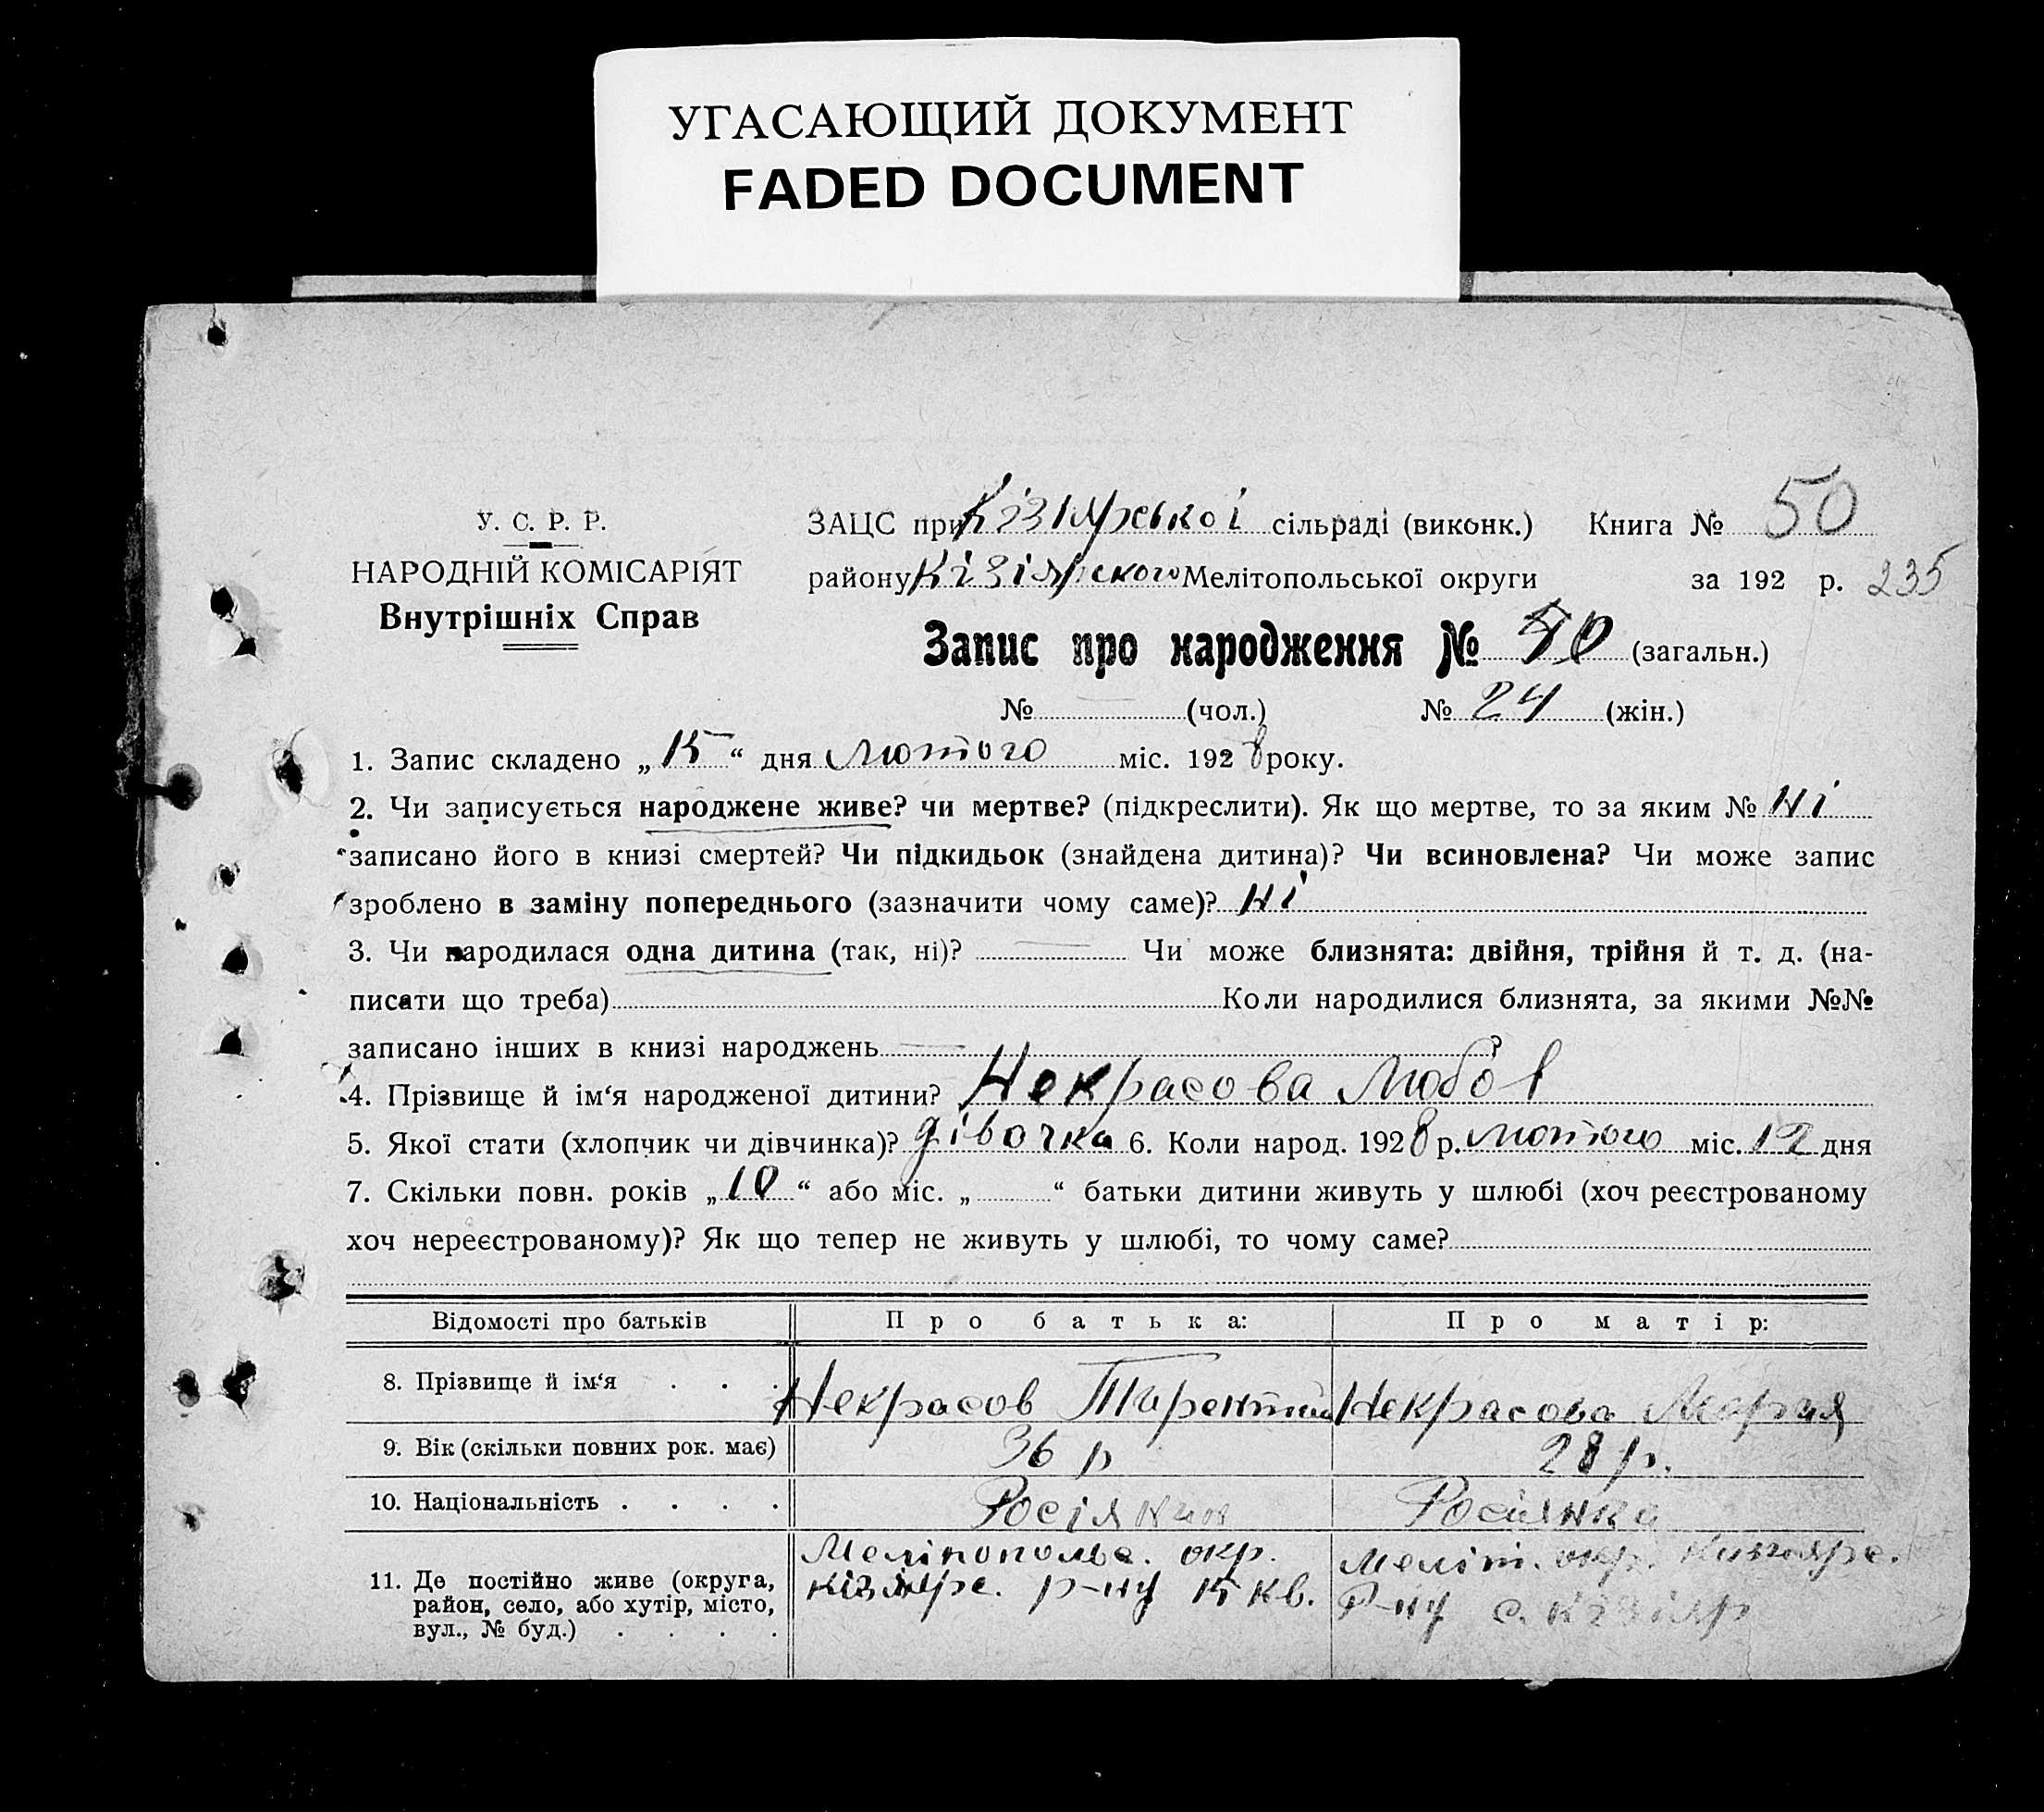 УГАСАЮЩИЙ ДОКУМЕНТ
FADED DOCUMENT
У. С. Р. Р.
НАРОДНІЙ КОМІСАРІЯТ
Внутрішніх Справ
ЗАЦС при Кізіярської сільраді (виконк.) Книга № 50
району Кізіярского Мелітопольської округи за 192 р. 235
Запис про народження № 50 (загальн.)
№ — (чол.) № 24 (жін.)
1. Запис складено „ 15 “ дня лютого міс. 1928 року.
2. Чи записується народжене живе? чи мертве? (підкреслити). Як що мертве, то за яким № ні
записано його в книзі смертей? Чи підкидьок (знайдена дитина)? Чи всиновлена? Чи може запис
зроблено в заміну попереднього (зазначити чому саме)? ні
3. Чи народилася одна дитина (так, ні)? — Чи може близнята: двійня, трійня й т. д. (на-
писати що треба) Коли народилися близнята, за якими №№
записано інших в книзі народжень — ?
4. Прізвище й ім‘я народженої дитини? Некрасова Любов
5. Якої стати (хлопчик чи дівчинка)? дівочка 6. Коли народ. 1928 р. лютого міс. 12 дня
7. Скільки повн. років „ 10 “ або міс. „ “ батьки дитини живуть у шлюбі (хоч реєстрованому
хоч нереєстрованому)? Як що тепер не живуть у шлюбі, то чому саме?
Відомості про батьків Про батька: Про матір:
8. Прізвище й ім‘я . . . Некрасов Тирентий Некрасова Мария
9. Вік (скільки повних рок. має) 36 р 28 р.
10. Національність . . . . Росіянин Росіянка
11. Де постійно живе (округа, район, село, або хутір, місто, вул., № буд.) . . . .
Мелітопольс. окр.
Кізіярс. р-ну 15 кв.
Меліт. окр. Кизіярс.
Р-ну с. Кізіяр